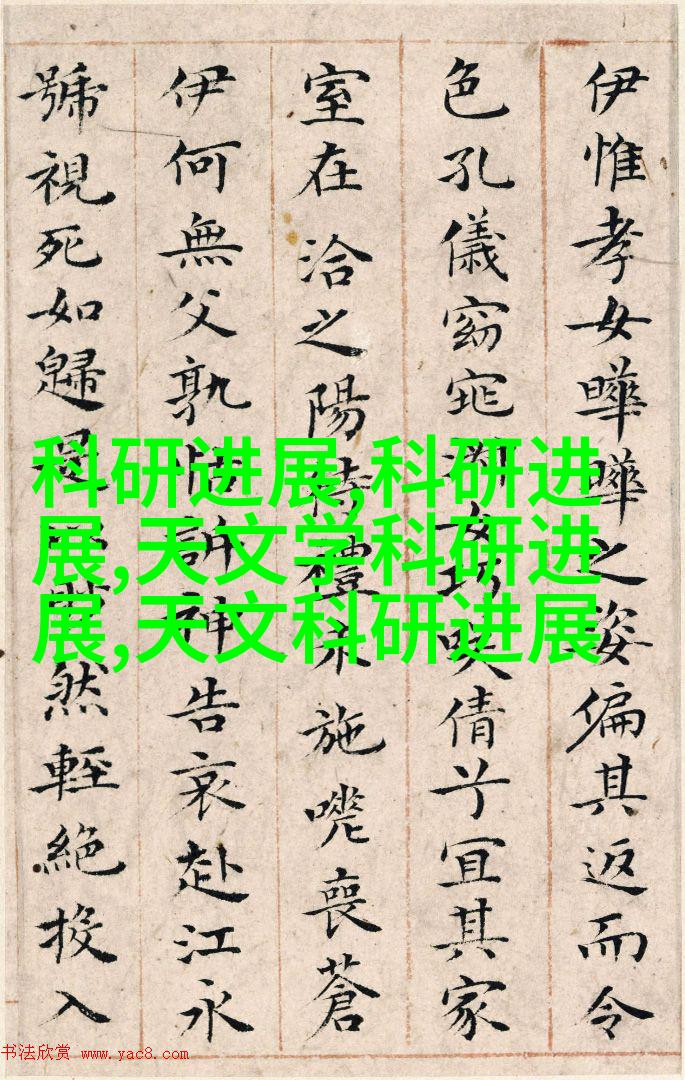 伊惟孝女曄曄之姿偏其返而令
色孔儀窈窕淑女巧咲倩兮宜其家
室在洽之陽待禮未施嗟喪蒼
伊何無父孰怙訴神告哀赴江永
號視死如歸是以眇然輕絕投入
科研进展,科研进
展,天文学科研进
展,天文科研进展
书法欣赏 www.yac8.com